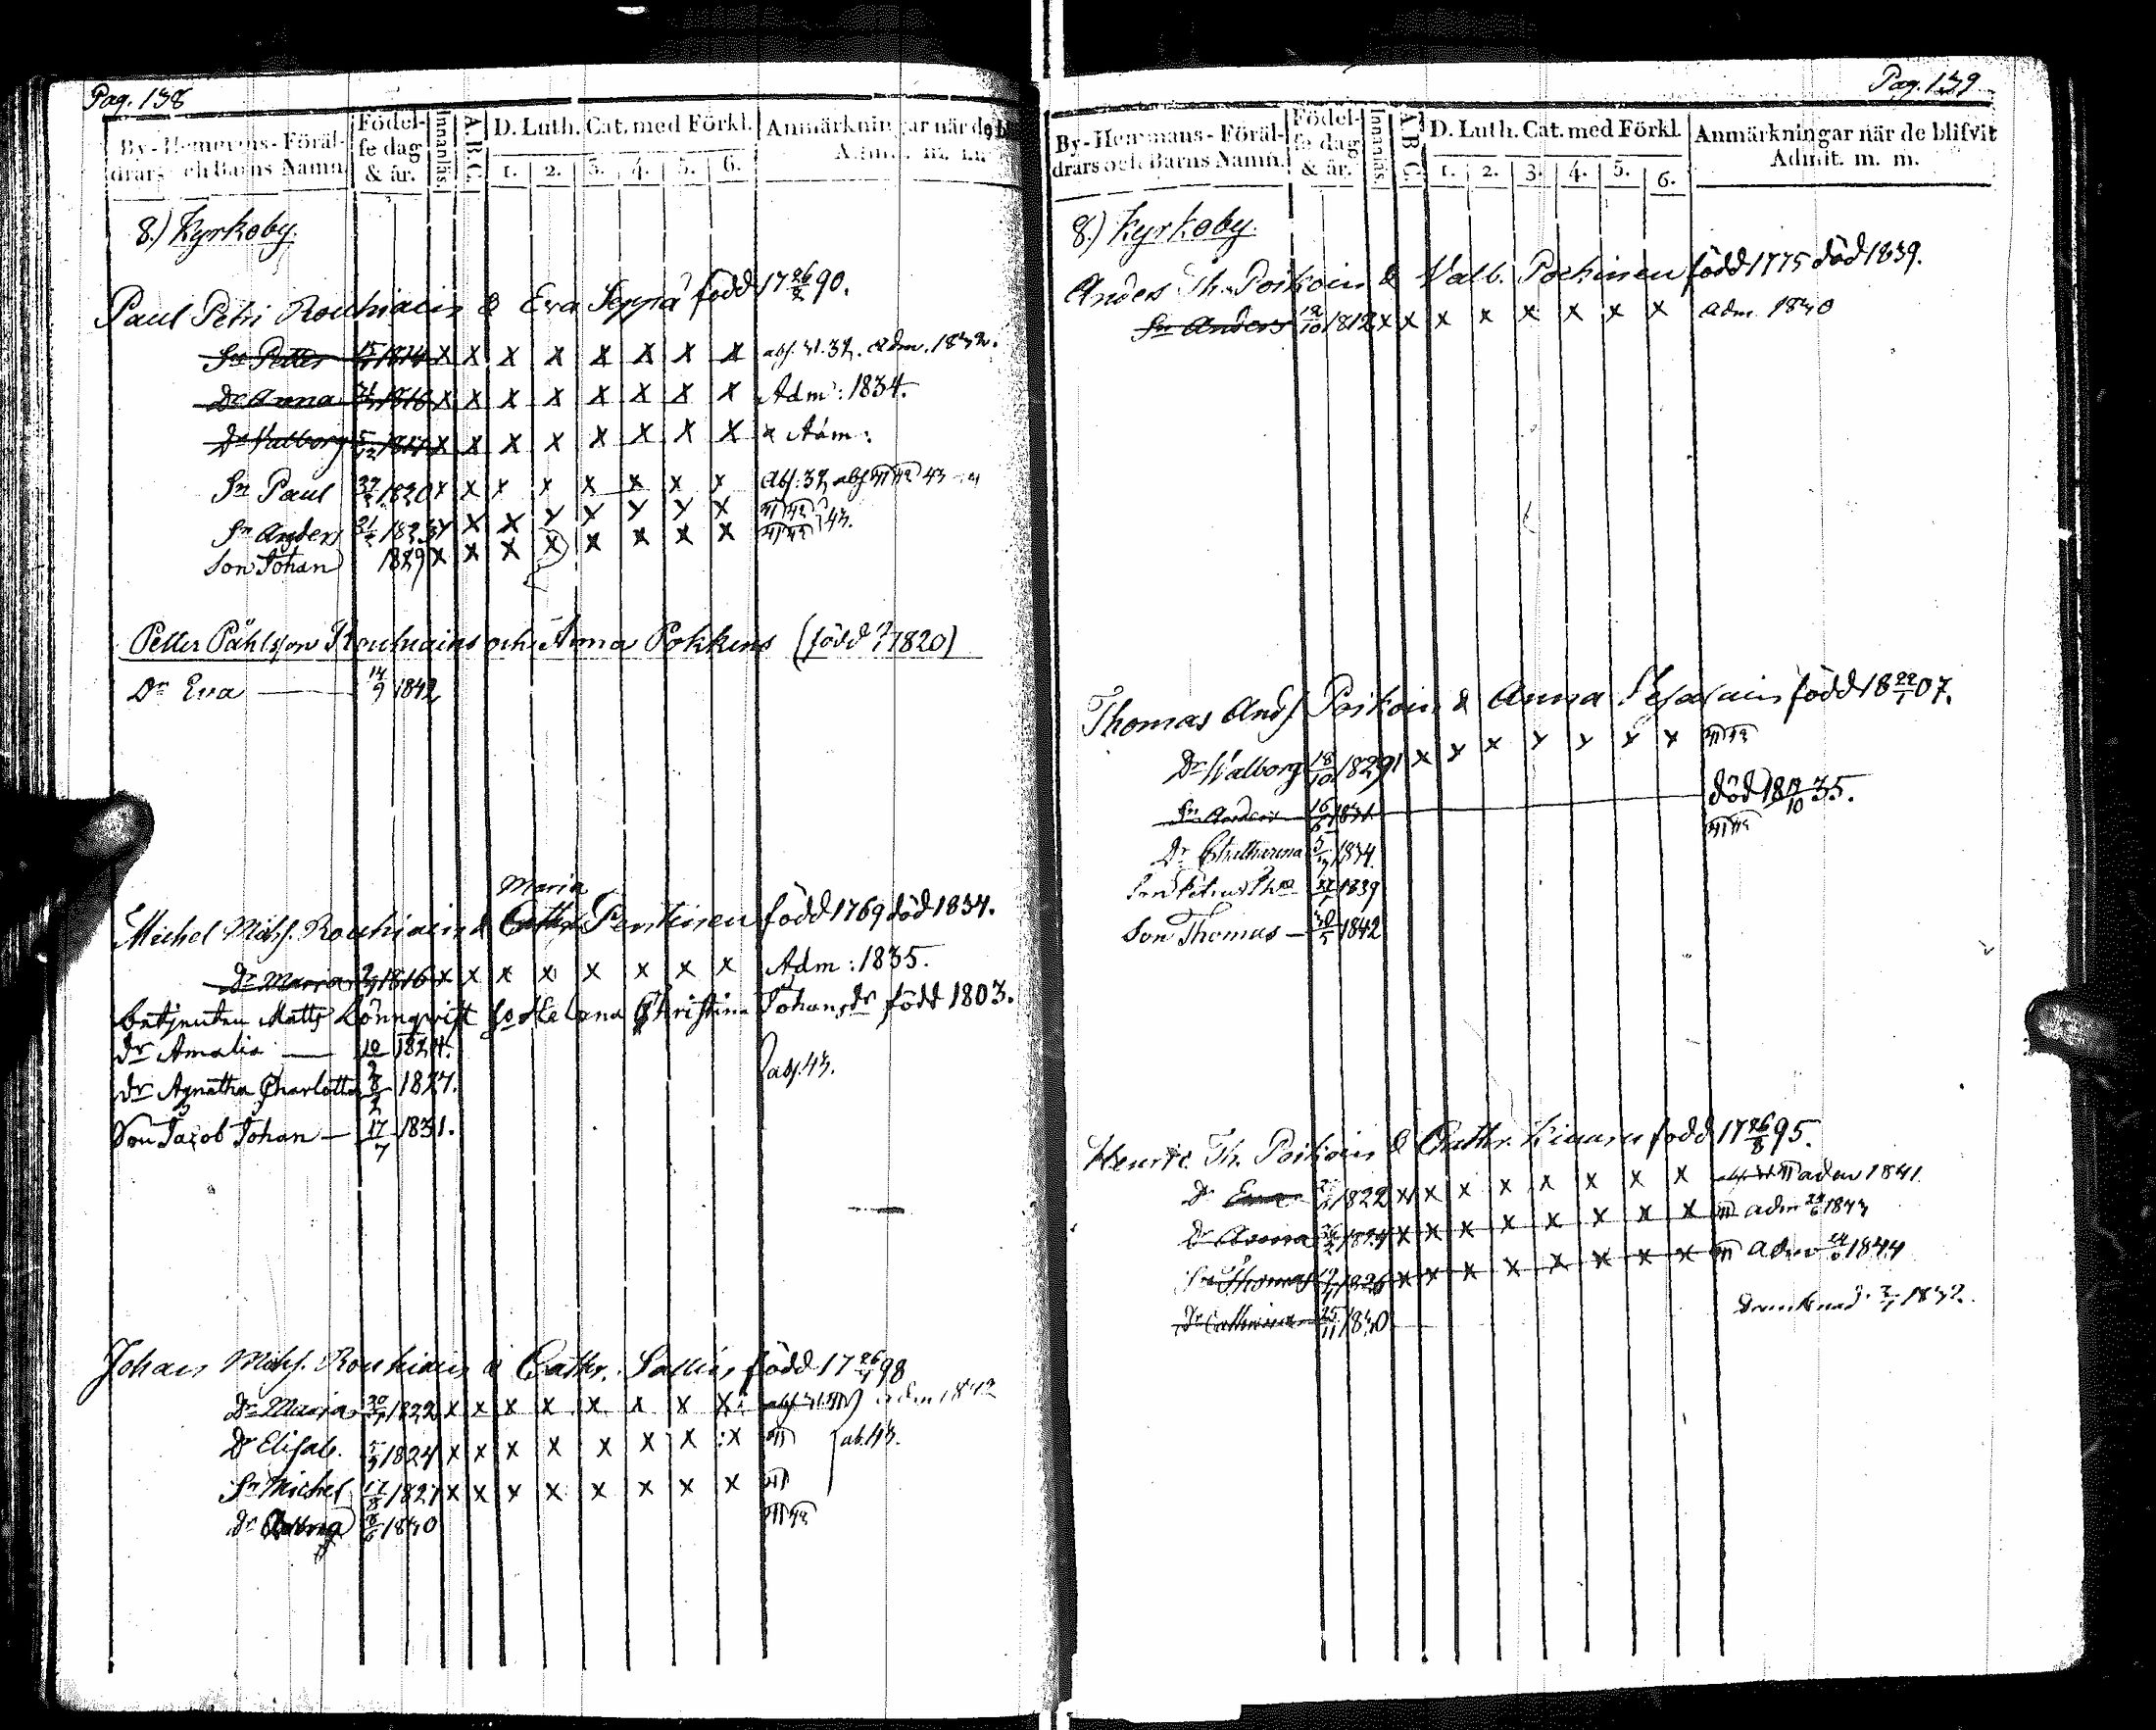 Pag. 138
By-Hemmans-Föräl-
drars och Barns Namn.
Födel-
se dag
& år.
Innanläs.
A.B.C.
D. Luth. Cat. med Förkl.
1. 2. 3. 4. 5. 6.
Anmärkningar när de bl
Admit. m. m.
8.) Kyrkoby.
Paul Petri Rouhiain & Eva Seppä född 17 26/2 90.
Sn Petter 1814 x x x x x x x x abs. 31.32. adm. 1832.
Dr Anna 1816 x x x x x x x x Adm: 1834.
Dr Valborg x x x x x x x x Adm:
Sn Paul 1820 x x x x x x x x Abs: 32 abs 41 42 43
Sn Anders 21/2 1823 x x x x x x x x 41 42 43.
Son Johan 1829 x x x x x x x x 41 42
Petter Påhlsson Rouhiains och Anna Pokkens (född 1820)
Dr Eva 14/9 1842
Maria
Michel Michs. Rouhiain & Cath. Penttinen född 1769 död 1834.
Dr Maria 1816 x x x x x x x x Adm: 1835.
betjenten Matts Lönnqvist Helena Christina Johansdr född 1803.
dr Amalia 1824.
dr Agnetha Charlotta 1827. abs. 43.
Son Jacob Johan 17/7 1831.
Johan Michs. Rouhiain & Cathr. född 17 98
Dr Maria 1822 x x x x x x x x adm 1842
Dr Elisab. 1824 x x x x x x x x 41 ab. 43.
Sn Michel 17/8 1827 x x x x x x x x 41
Dr 8/6 1840 41 42
Pag. 139
By-Hemmans-Föräl-
drars och Barns Namn.
Födel-
se dag
& år.
Innanläs.
A.B.C.
D. Luth. Cat. med Förkl.
1. 2. 3. 4. 5. 6.
Anmärkningar när de blifvit
Admit. m. m.
8.) Kyrkoby.
Anders Th. Poikoin & Valb. född 1775 död 1839.
Sn Anders 12/10 1812 x x x x x x x x adm. 1830
Thomas Ands Poikoin & Anna född 18 22/1 07.
Dr Valborg 18/10 1829 x x x x x x x 41 42
Sn Anders 1831 död 18 /10 35.
Dr Chatharina 1834 41 42
Son 1839
Son Thomas 30/5 1842
Henric Th. Poikoin & Cathr. född 17 26/8 95.
Dr Eva 1822 x x x x x x x x 41 adm 1841.
Dr Anna 1824 x x x x x x x x 41 adm 24/6 1843
Sn Thomas 1826 x x x x x x x x 41 adm 1844
Dr Cathrina 25/11 1830 1832.